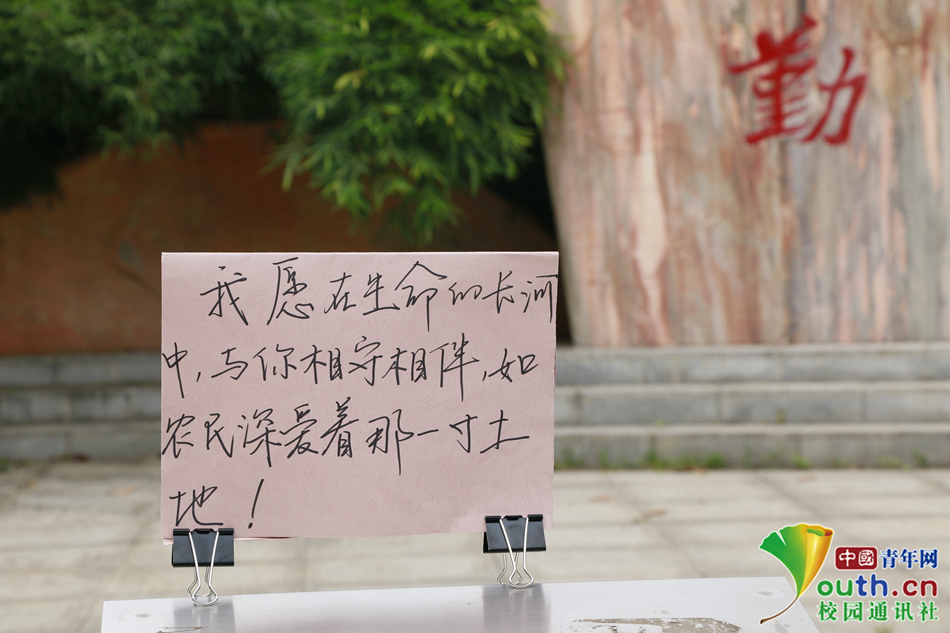 勤
我愿在生命的长河
中,与你相守相伴,如
农民深爱着那一寸土
地!
中國青年网
youth.cn
校园通讯社